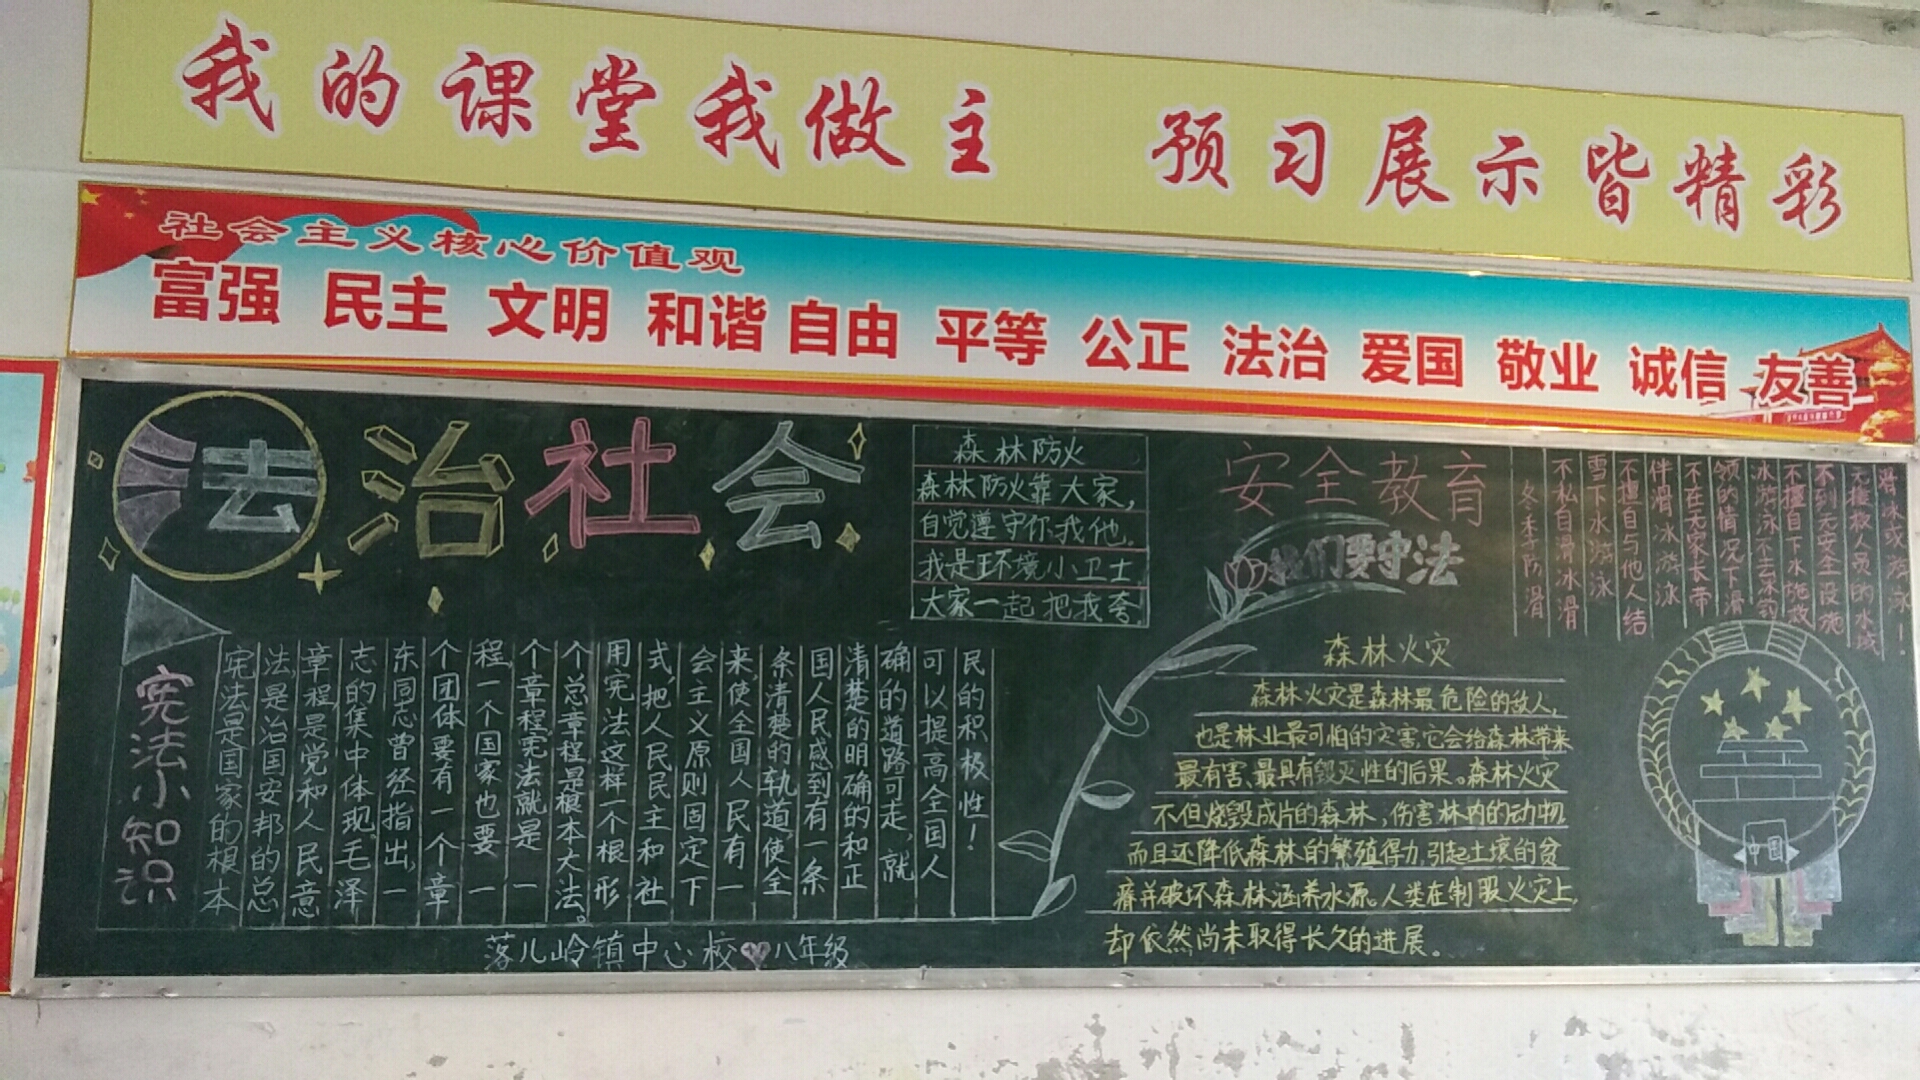 我的课堂我做主 预习展示皆精彩
社会主义核心价值观
富强 民主 文明 和谐 自由 平等 公正 法治 爱国 敬业 诚信 友善
法治社会
宪法小知识
宪法是国家的根本
法,是治国安邦的总
章程是党和人民意
志的集中体现。毛泽
东同志曾经指出,一
个团体要有一个章
程,一个国家也要一
个章程,宪法就是一
个总章程是根本大法。
用宪法这样一个根形
式,把人民民主和社
会主义原则固定下
来,使全国人民有一
条清楚的轨道,使全
国人民感到有一条
清楚的明确的和正
确的道路可走,就
可以提高全国人
民的积极性!
森林防火
森林防火靠大家,
自觉遵守你我他。
我是环境小卫士
大家一起把我夸
安全教育
我们要守法
冬季防滑
不私自滑冰滑
雪下水游泳
不擅自与他人结
伴滑冰游泳
不在无家长带
领的情况下滑
冰游泳不去深的
不擅自下水施救
不到无安全设施
无 人员的水域
滑冰或游泳!
森林火灾
森林火灾是森林最危险的敌人,
也是林业最可怕的灾害,它会给森林带来
最有害、最具有毁灭性的后果。森林火灾
不但烧毁成片的森林,伤害林内的动物,
而且还降低森林的繁殖得力,引起土壤的贫
瘠并破坏森林涵养水源。人类在制服火灾上,
却依然尚未取得长久的进展。
中国
落儿岭镇中心校 八年级